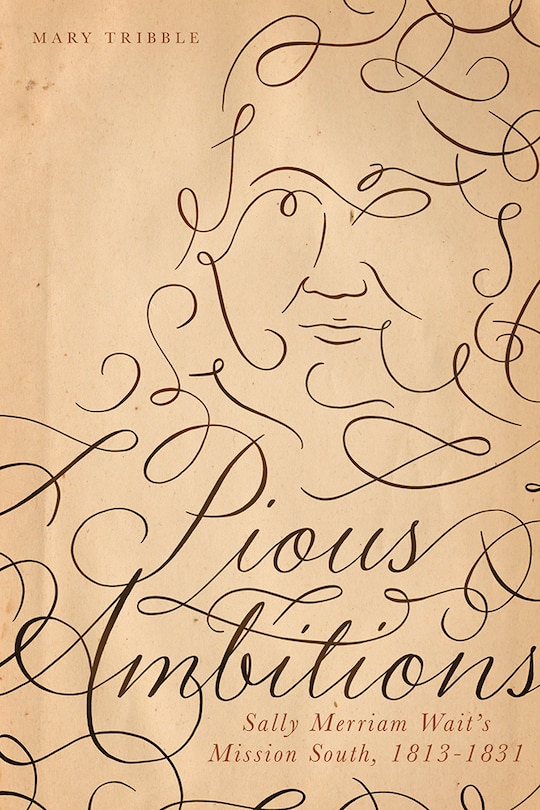 MARY TRIBBLE
Pious
Ambitions
Sally Merriam Wait's
Mission South, 1813-1831